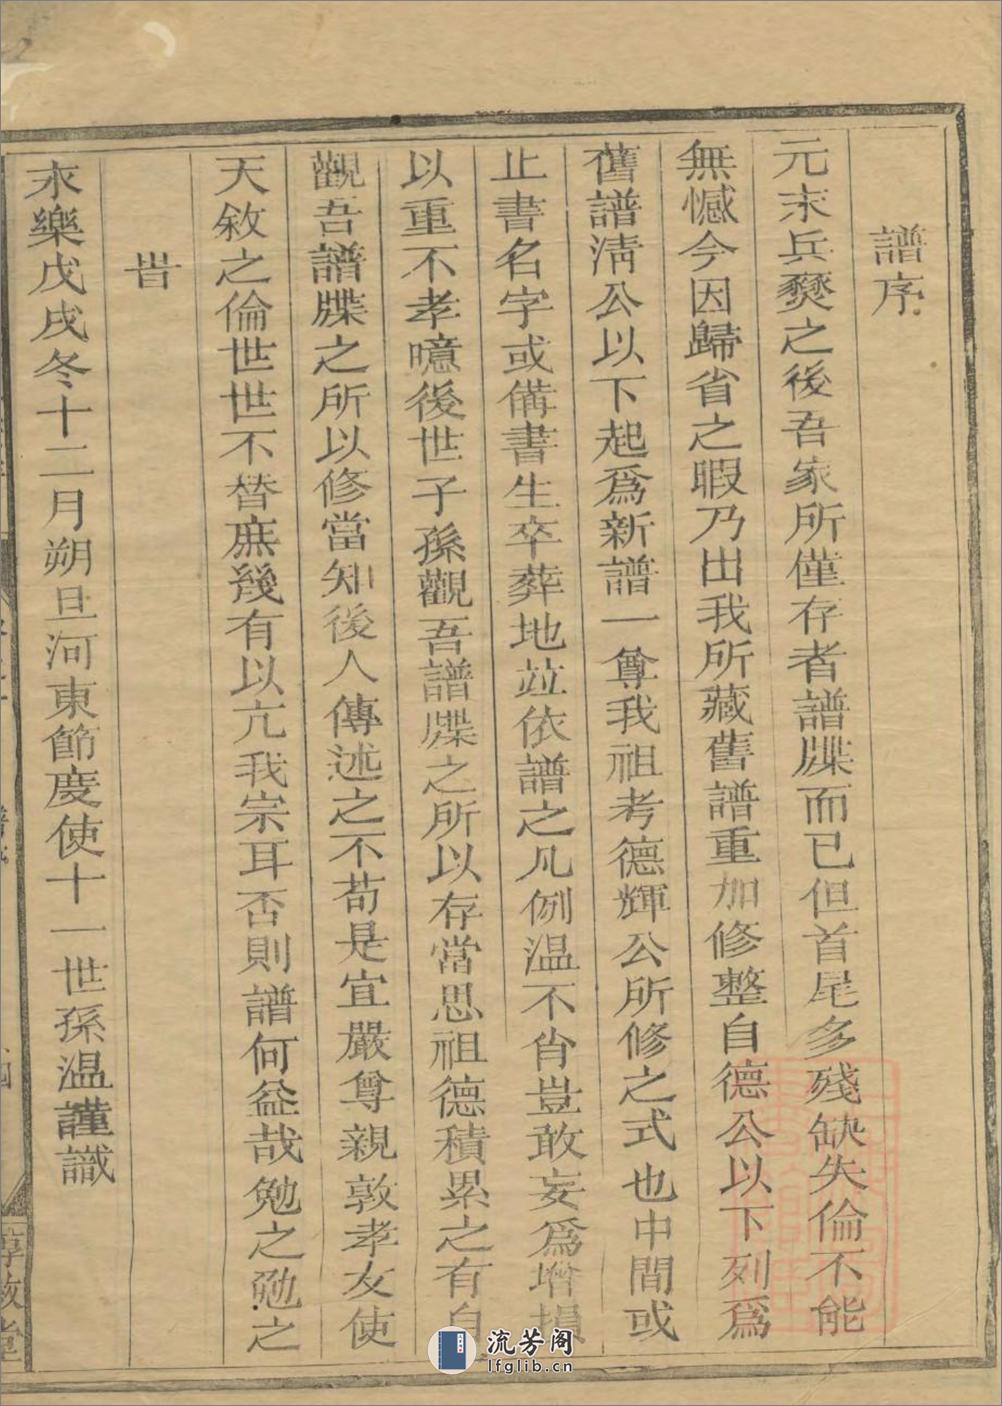 譜序
元末兵燹之後吾家所僅存者譜牒而已但首尾多殘缺失倫不能
無憾今因歸省之暇乃出我所藏舊譜重加修整自德公以下列爲
舊譜淸公以下起爲新譜一尊我祖考德輝公所修之式也中間或
止書名字或備書生卒葬地竝依譜之凡例溫不肖豈敢妄爲增損
以重不孝噫後世子孫觀吾譜牒之所以存當思祖德積累之有自
觀吾譜牒之所以修當知後人傳述之不苟是宜嚴尊親敦孝友使
天敘之倫世世不替庶幾有以亢我宗耳否則譜何益哉勉之勉之
旹
永樂戊戌冬十二月朔旦河東節度使十一世孫溫謹識
流芳阁
lfglib.cn